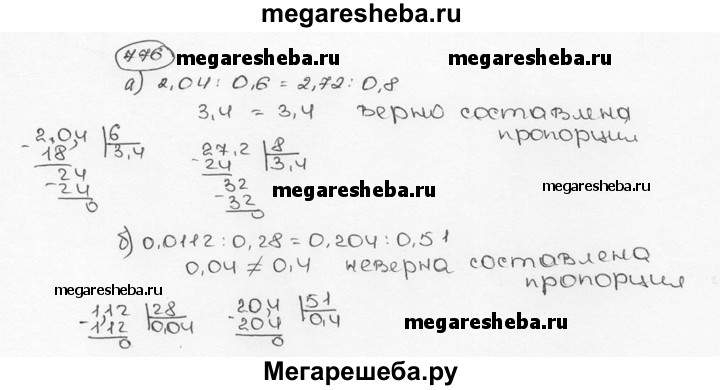 megaresheba.ru
776
megaresheba.ru megaresheba.ru
а) 2,04 : 0,6 = 2,72 : 0,8
3,4 = 3,4 верно составлена
пропорции
2,04 | 6
- 18, 3,4
24
- 24
0
27,2 | 8
- 24 3,4
32
- 32
0
megaresheba.ru
megaresheba.ru
б) 0,0112 : 0,28 = 0,204 : 0,51
0,04 ≠ 0,4 неверна составлена
пропорция
megaresheba.ru
1,12 | 28
- 1,12 0,04
0
20,4 | 51
- 204 0,4
0
megaresheba.ru
Мегарешеба.ру